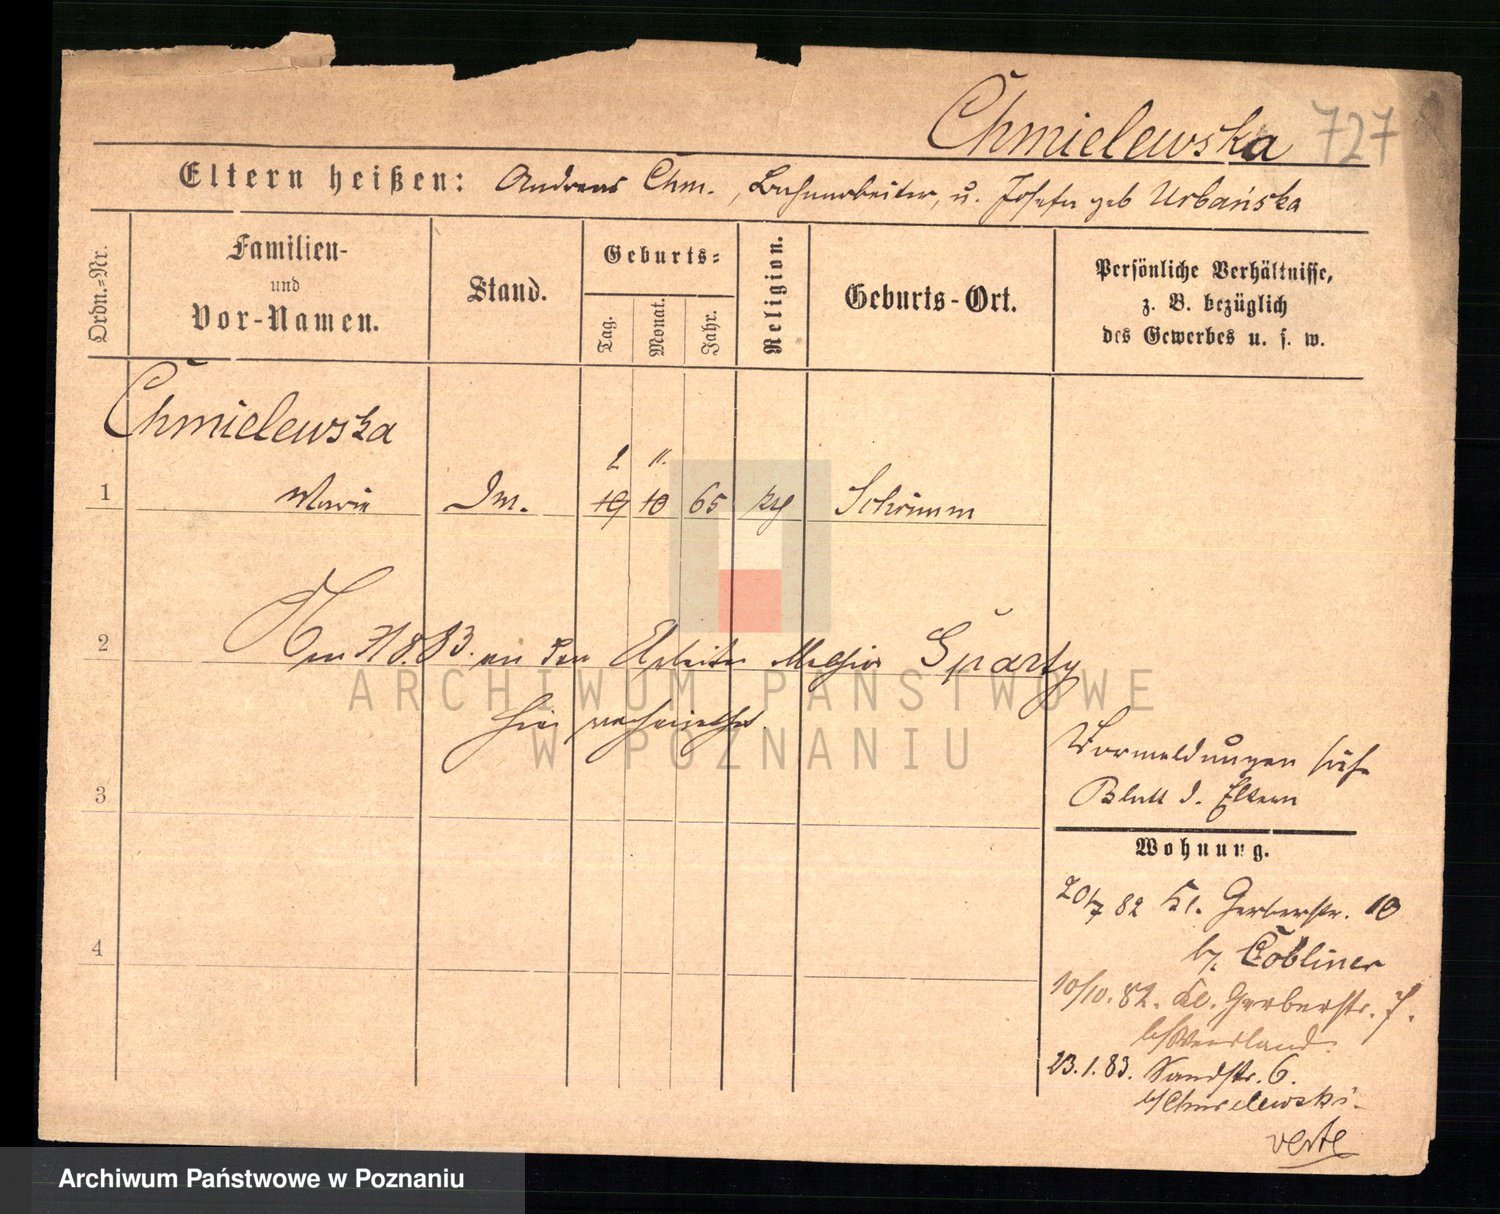 Chmielewska 727
Eltern heißen: Andreas Chm., Bahnarbeiter, u. Josefa geb Urbańska
Ordn.=Nr.
Familien-
und
Vor-Namen.
Stand.
Geburts=
Tag.
Monat.
Jahr.
Religion.
Geburts-Ort.
Persönliche Verhältnisse,
z. B. bezüglich
des Gewerbes u. s. w.
Chmielewska
2 11.
1 Marie Dm. 19 10 65 Schrimm
2 8.83. an den Arbeiter Melchior Sparty
hier verheirathet.
ARCHIWUM PAŃSTWOWE
W POZNANIU
Vormeldungen siehe
Blatt d. Eltern
3
Wohnung.
20/7 82 Kl. Gerberstr. 10
b/. Cobliner
4
10/10. 82. Kl. Gerberstr. 7.
23.1.83. Sandstr. 6.
b/ Chmielewski.
verte
Archiwum Państwowe w Poznaniu